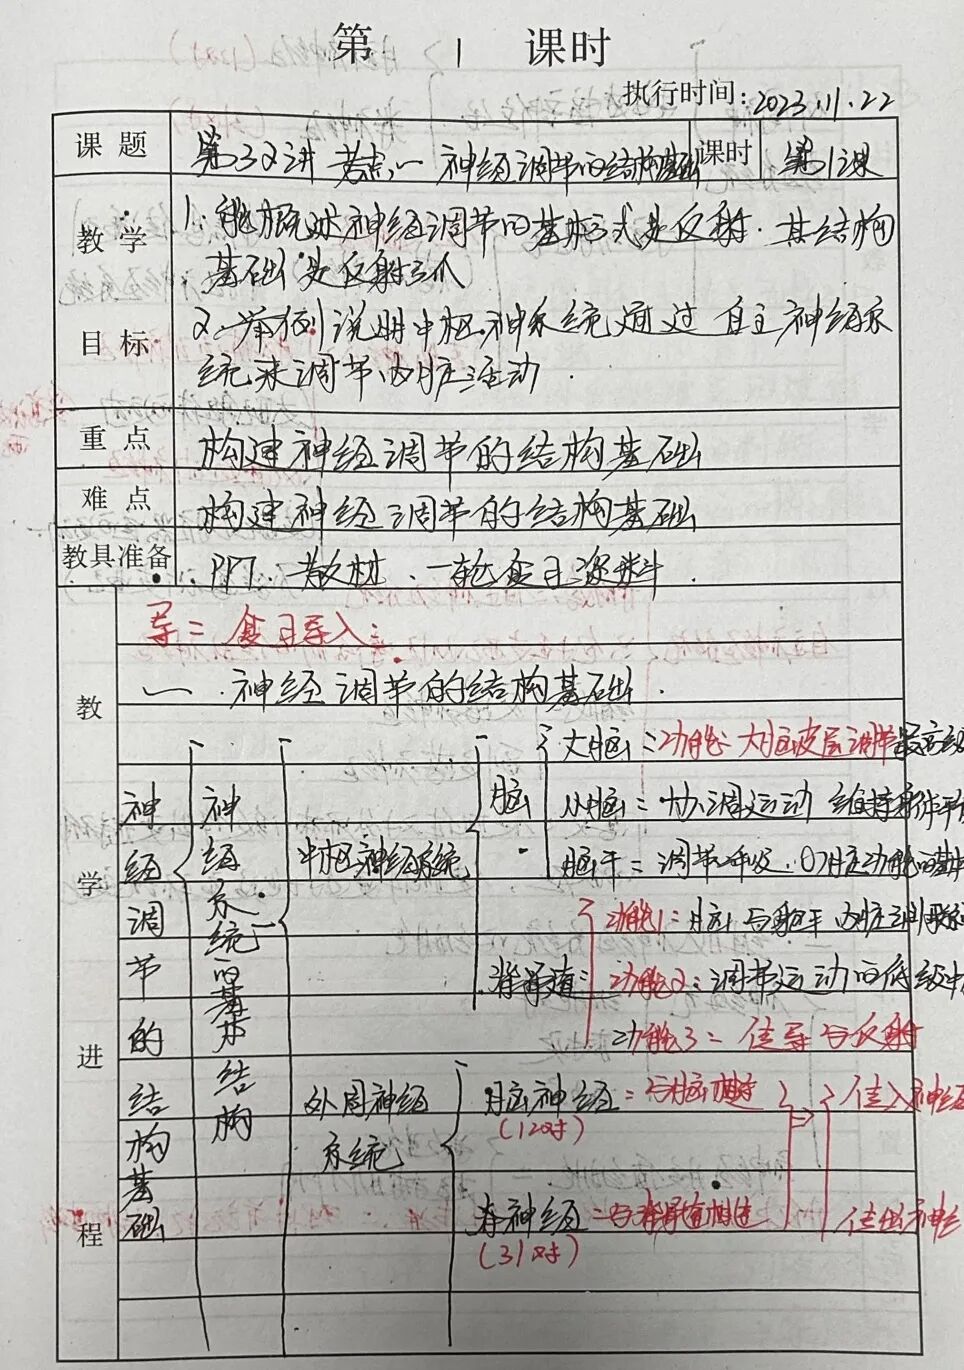 第 1 课时
执行时间：2023.11.22
课题 第32讲 考点一 神经调节的结构基础 课时 第1课
教学目标
1. 能概述神经调节的基本方式是反射. 其结构
基础是反射弧
2. 举例说明中枢神经系统通过自主神经系
统来调节内脏活动.
重点 构建神经调节的结构基础
难点 构建神经调节的结构基础
教具准备 PPT. 教材. 一轮复习资料.
教学进程
导：复习导入：
一. 神经调节的结构基础.
神经调节的结构基础
神经系统的基本结构
中枢神经系统
脑
大脑：功能：大脑皮层调节最高级
小脑：协调运动 维持身体平
脑干：调节呼吸. 内脏功能的基本中
脊髓：
功能1：脑与躯干 内脏
功能2：调节运动的低级中
功能3：传导与反射
外周神经系统
脑神经：与脑相连
(12对)
传入神经
脊神经：与脊髓相连
(31对)
传出神经